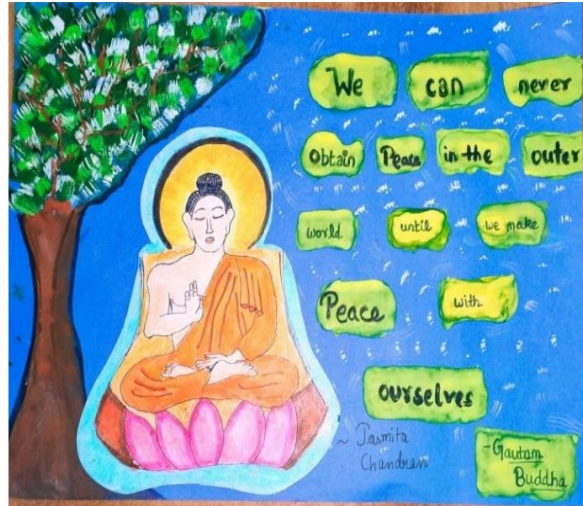 We can never
Obtain Peace in the outer
world until we make
Peace with
ourselves
~ Jasmita
Chandran
- Gautam
Buddha